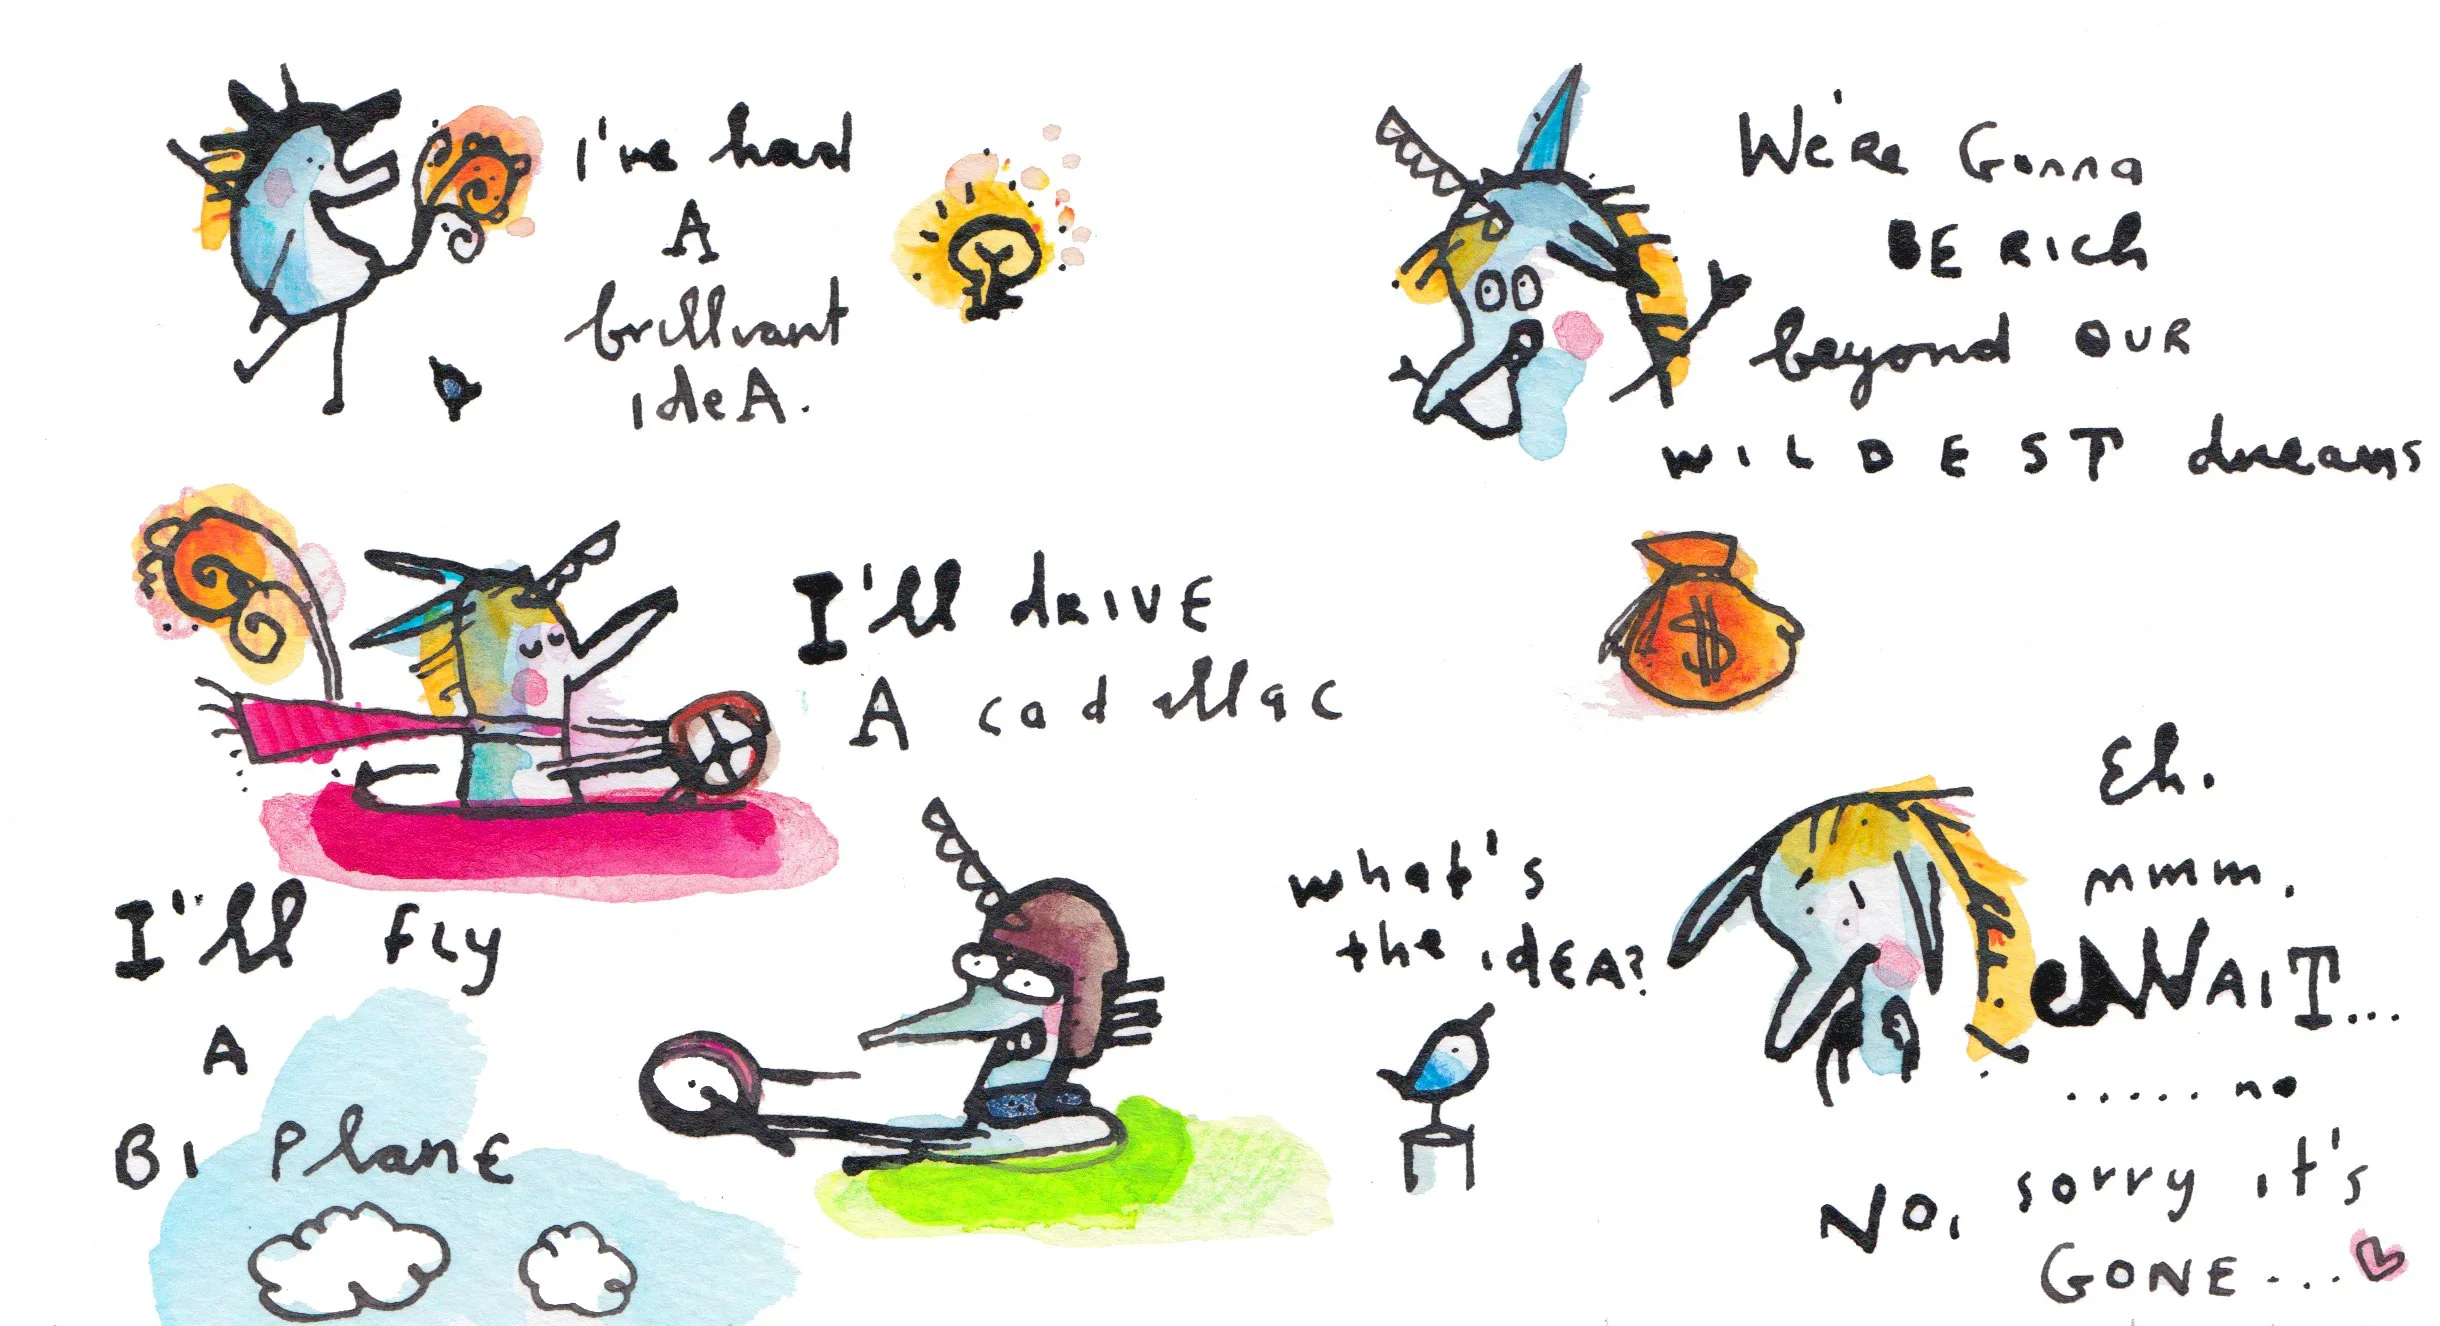 I've had
A
brilliant
ideA.
We're Gonna
BE RICh
beyond OUR
WILDEST dreams
$
I'll dRIVE
A cadillac
I'll fLy
A
BI PlanE
what's
the idEA?
Eh.
mmm.
WAIT...
..... no
No, sorry it's
GONE...